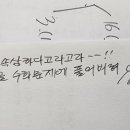 3.11
16.0
속상하다고라고라--!!
수학문제에 풀어버려